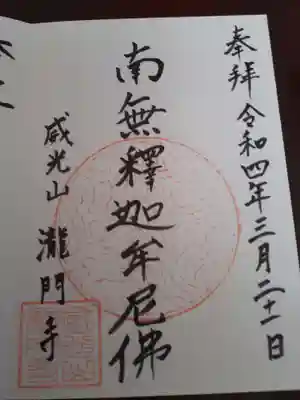 奉拝 令和四年三月二十一日
南無釋迦牟尼佛
威光山 瀧門寺